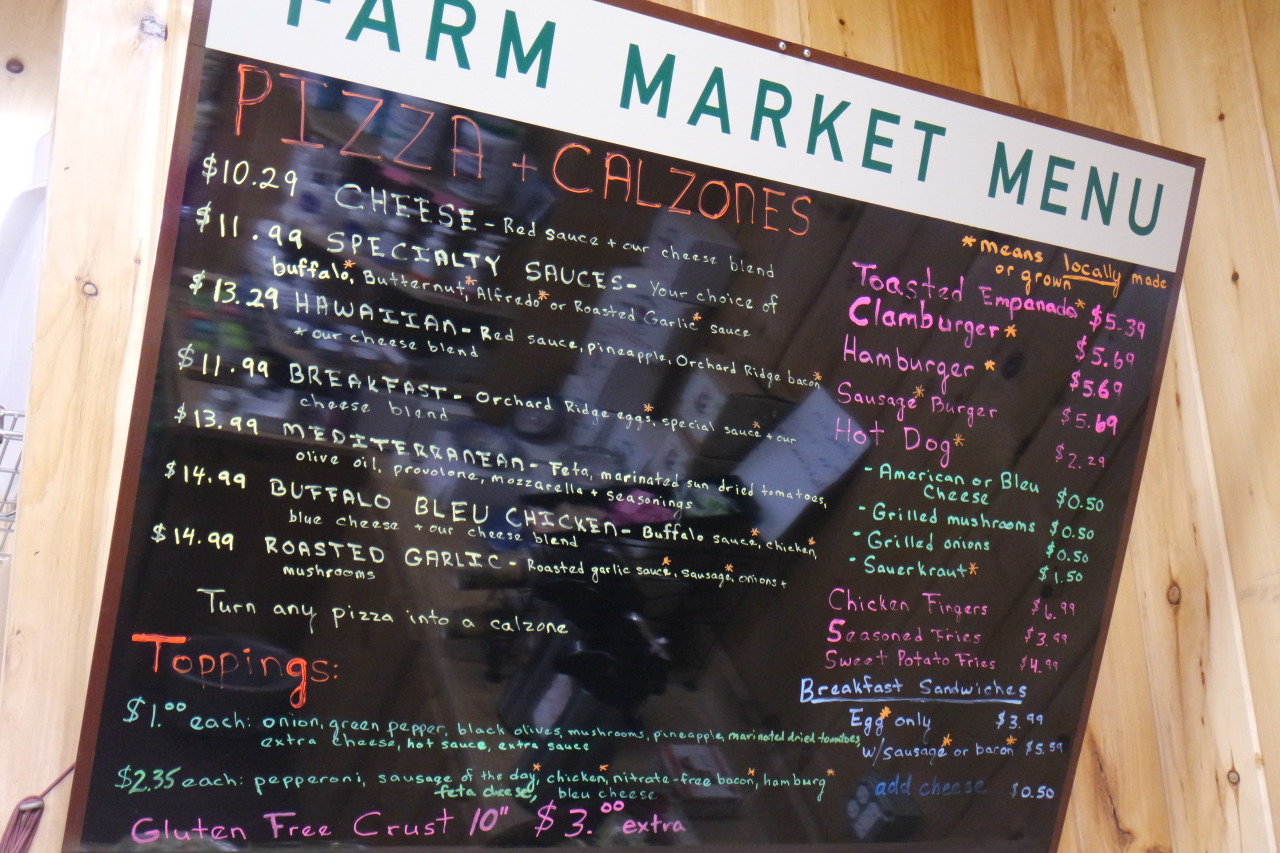 FARM MARKET MENU
PIZZA + CALZONES
$10.29 CHEESE - Red sauce + our cheese blend
$11.99 SPECIALTY SAUCES - Your choice of
buffalo*, Butternut*, Alfredo* or Roasted Garlic* sauce
$13.29 HAWAIIAN - Red sauce, pineapple, Orchard Ridge bacon*
* our cheese blend
$11.99 BREAKFAST - Orchard Ridge eggs*, special sauce* + our
cheese blend
$13.99 MEDITERRANEAN - Feta, marinated sun dried tomatoes,
olive oil, provolone, mozzarella + seasonings
$14.99 BUFFALO BLEU CHICKEN - Buffalo sauce*, chicken*,
blue cheese + our cheese blend
$14.99 ROASTED GARLIC - Roasted garlic sauce*, sausage*, onions +
mushrooms
Turn any pizza into a calzone
Toppings:
$1.00 each: onion, green pepper, black olives, mushrooms, pineapple, marinated dried tomatoes
extra cheese, hot sauce, extra sauce
$2.35 each: pepperoni, sausage of the day*, chicken*, nitrate-free bacon*, hamburg*
feta cheese, bleu cheese
Gluten Free Crust 10" $3.00 extra
* means locally made
or grown
Toasted Empanada* $5.39
Clamburger* $5.69
Hamburger* $5.69
Sausage* Burger $5.69
Hot Dog* $2.29
- American or Bleu
Cheese $0.50
- Grilled mushrooms $0.50
- Grilled onions $0.50
- Sauerkraut* $1.50
Chicken Fingers $6.99
Seasoned Fries $3.99
Sweet Potato Fries $4.99
Breakfast Sandwiches
Egg* only $3.99
w/sausage* or bacon* $5.59
add cheese $0.50